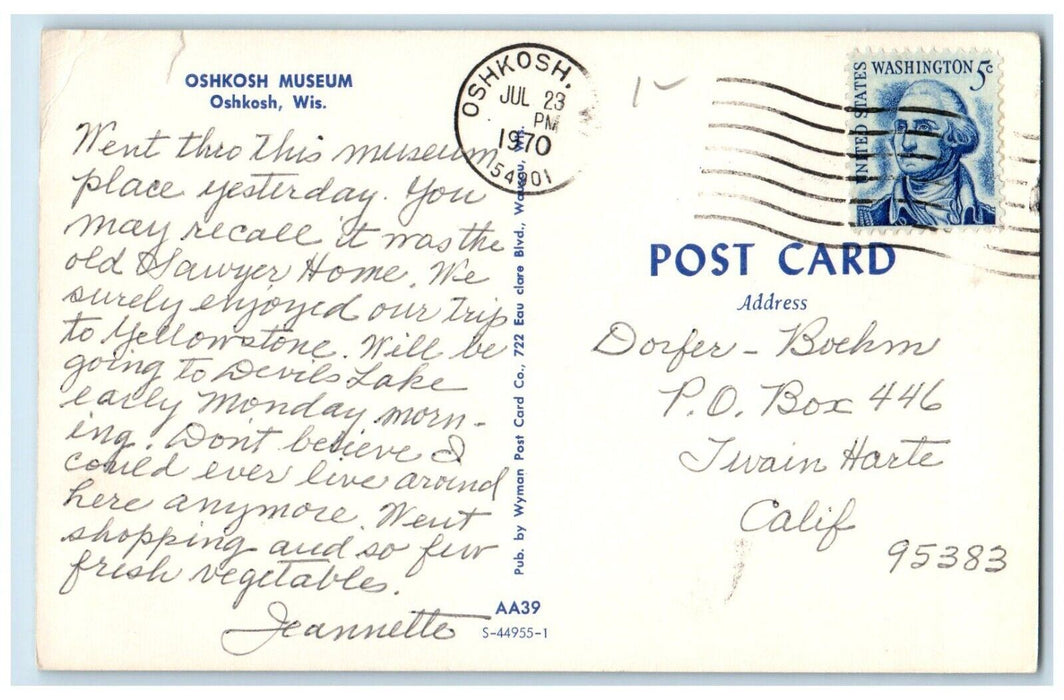 OSHKOSH MUSEUM
Oshkosh, Wis.
Went thro this museum
place yesterday. You
may recall it was the
old Sawyer Home. We
surely enjoyed our trip
to Yellowstone. Will be
going to Devils Lake
early Monday morn-
ing. Dont believe I
could ever live around
here anymore. Went
shopping and so few
fresh vegetables.
Jeannette
AA39
S-44955-1
Pub. by Wyman Post Card Co., 722 Eau clare Blvd., Wausau, Wis.
OSHKOSH,
JUL 23
PM
1970
54901
UNITED STATES
WASHINGTON 5c
POST CARD
Address
Dorfer - Boehm
P.O. Box 446
Twain Harte
Calif
95383